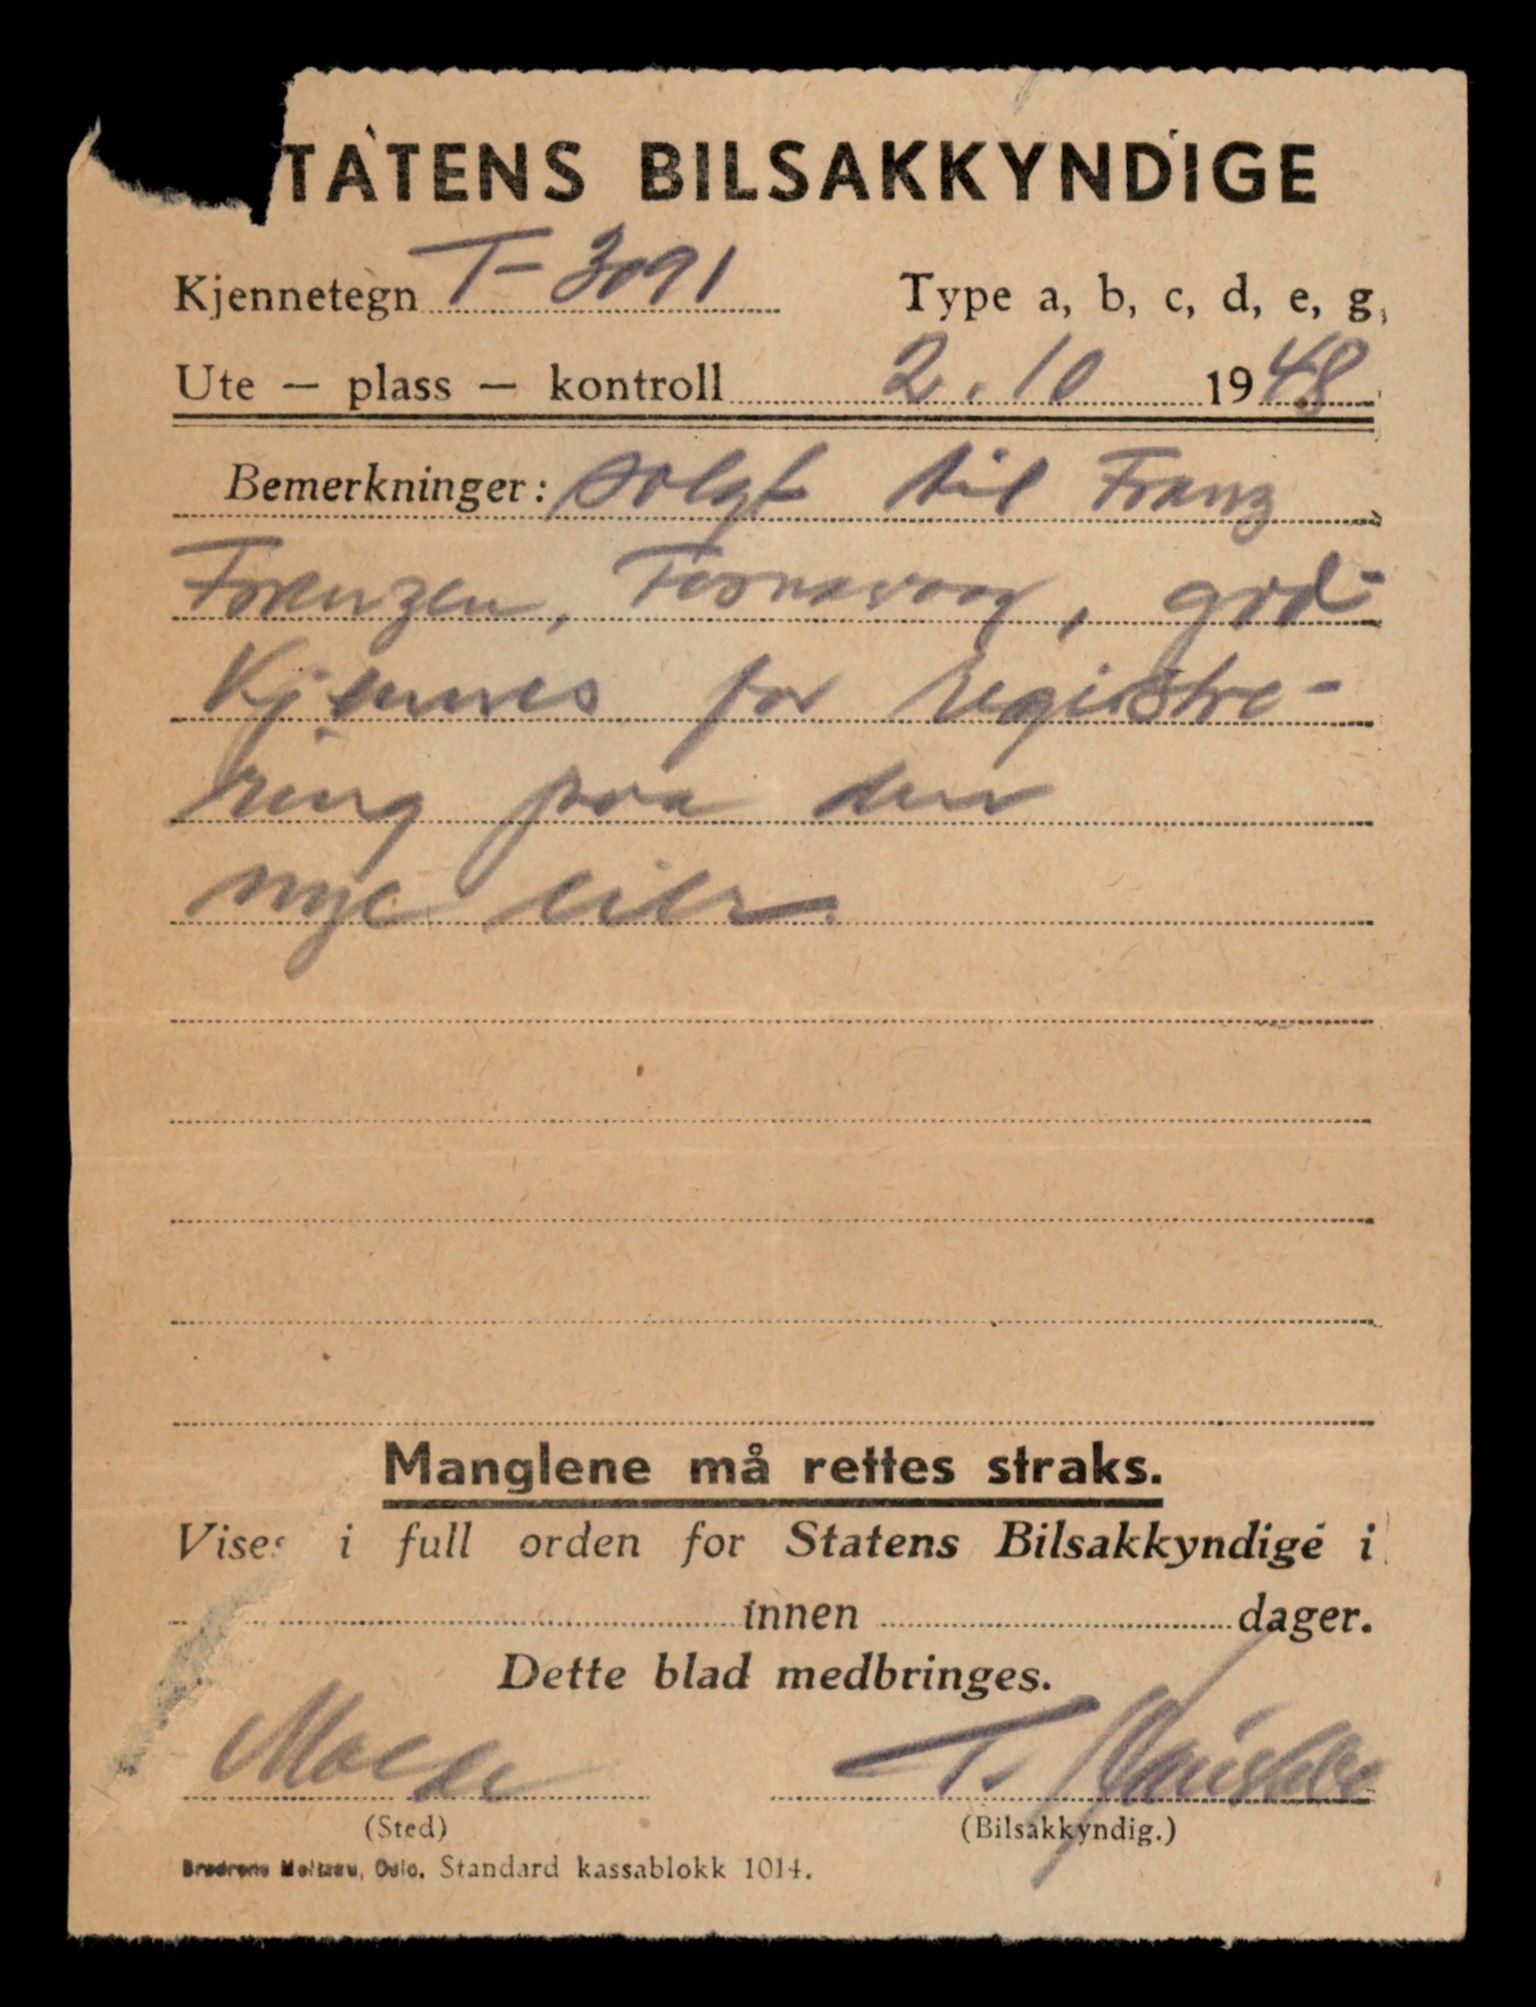 TATENS BILSAKKYNDIGE
Kjennetegn T-3091 Type a, b, c, d, e, g,
Ute — plass — kontroll 2.10 1948
Bemerkninger: solgt til Franz
Frenzen, Fosnavaag, god-
kjennes for registre-
ring paa den
nye eier.
Manglene må rettes straks.
Vises i full orden for Statens Bilsakkyndige i
innen dager.
Dette blad medbringes.
Molde T.
(Sted) (Bilsakkyndig.)
Brødrene Meltzau, Oslo. Standard kassablokk 1014.